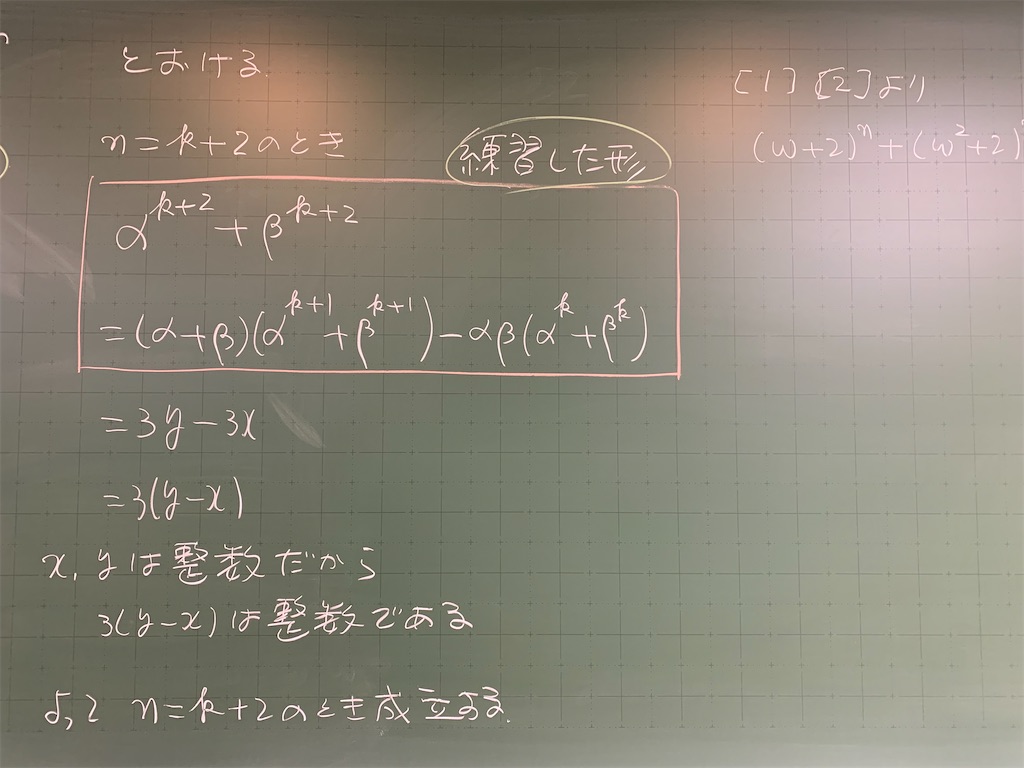 とおける.
n=k+2のとき
練習した形
α^{k+2}+β^{k+2}
=(α+β)(α^{k+1}+β^{k+1})-αβ(α^k+β^k)
=3y-3x
=3(y-x)
x, yは整数だから
3(y-x)は整数である
よって n=k+2のとき成立する.
[1] [2]より
(ω+2)^n+(ω^2+2)